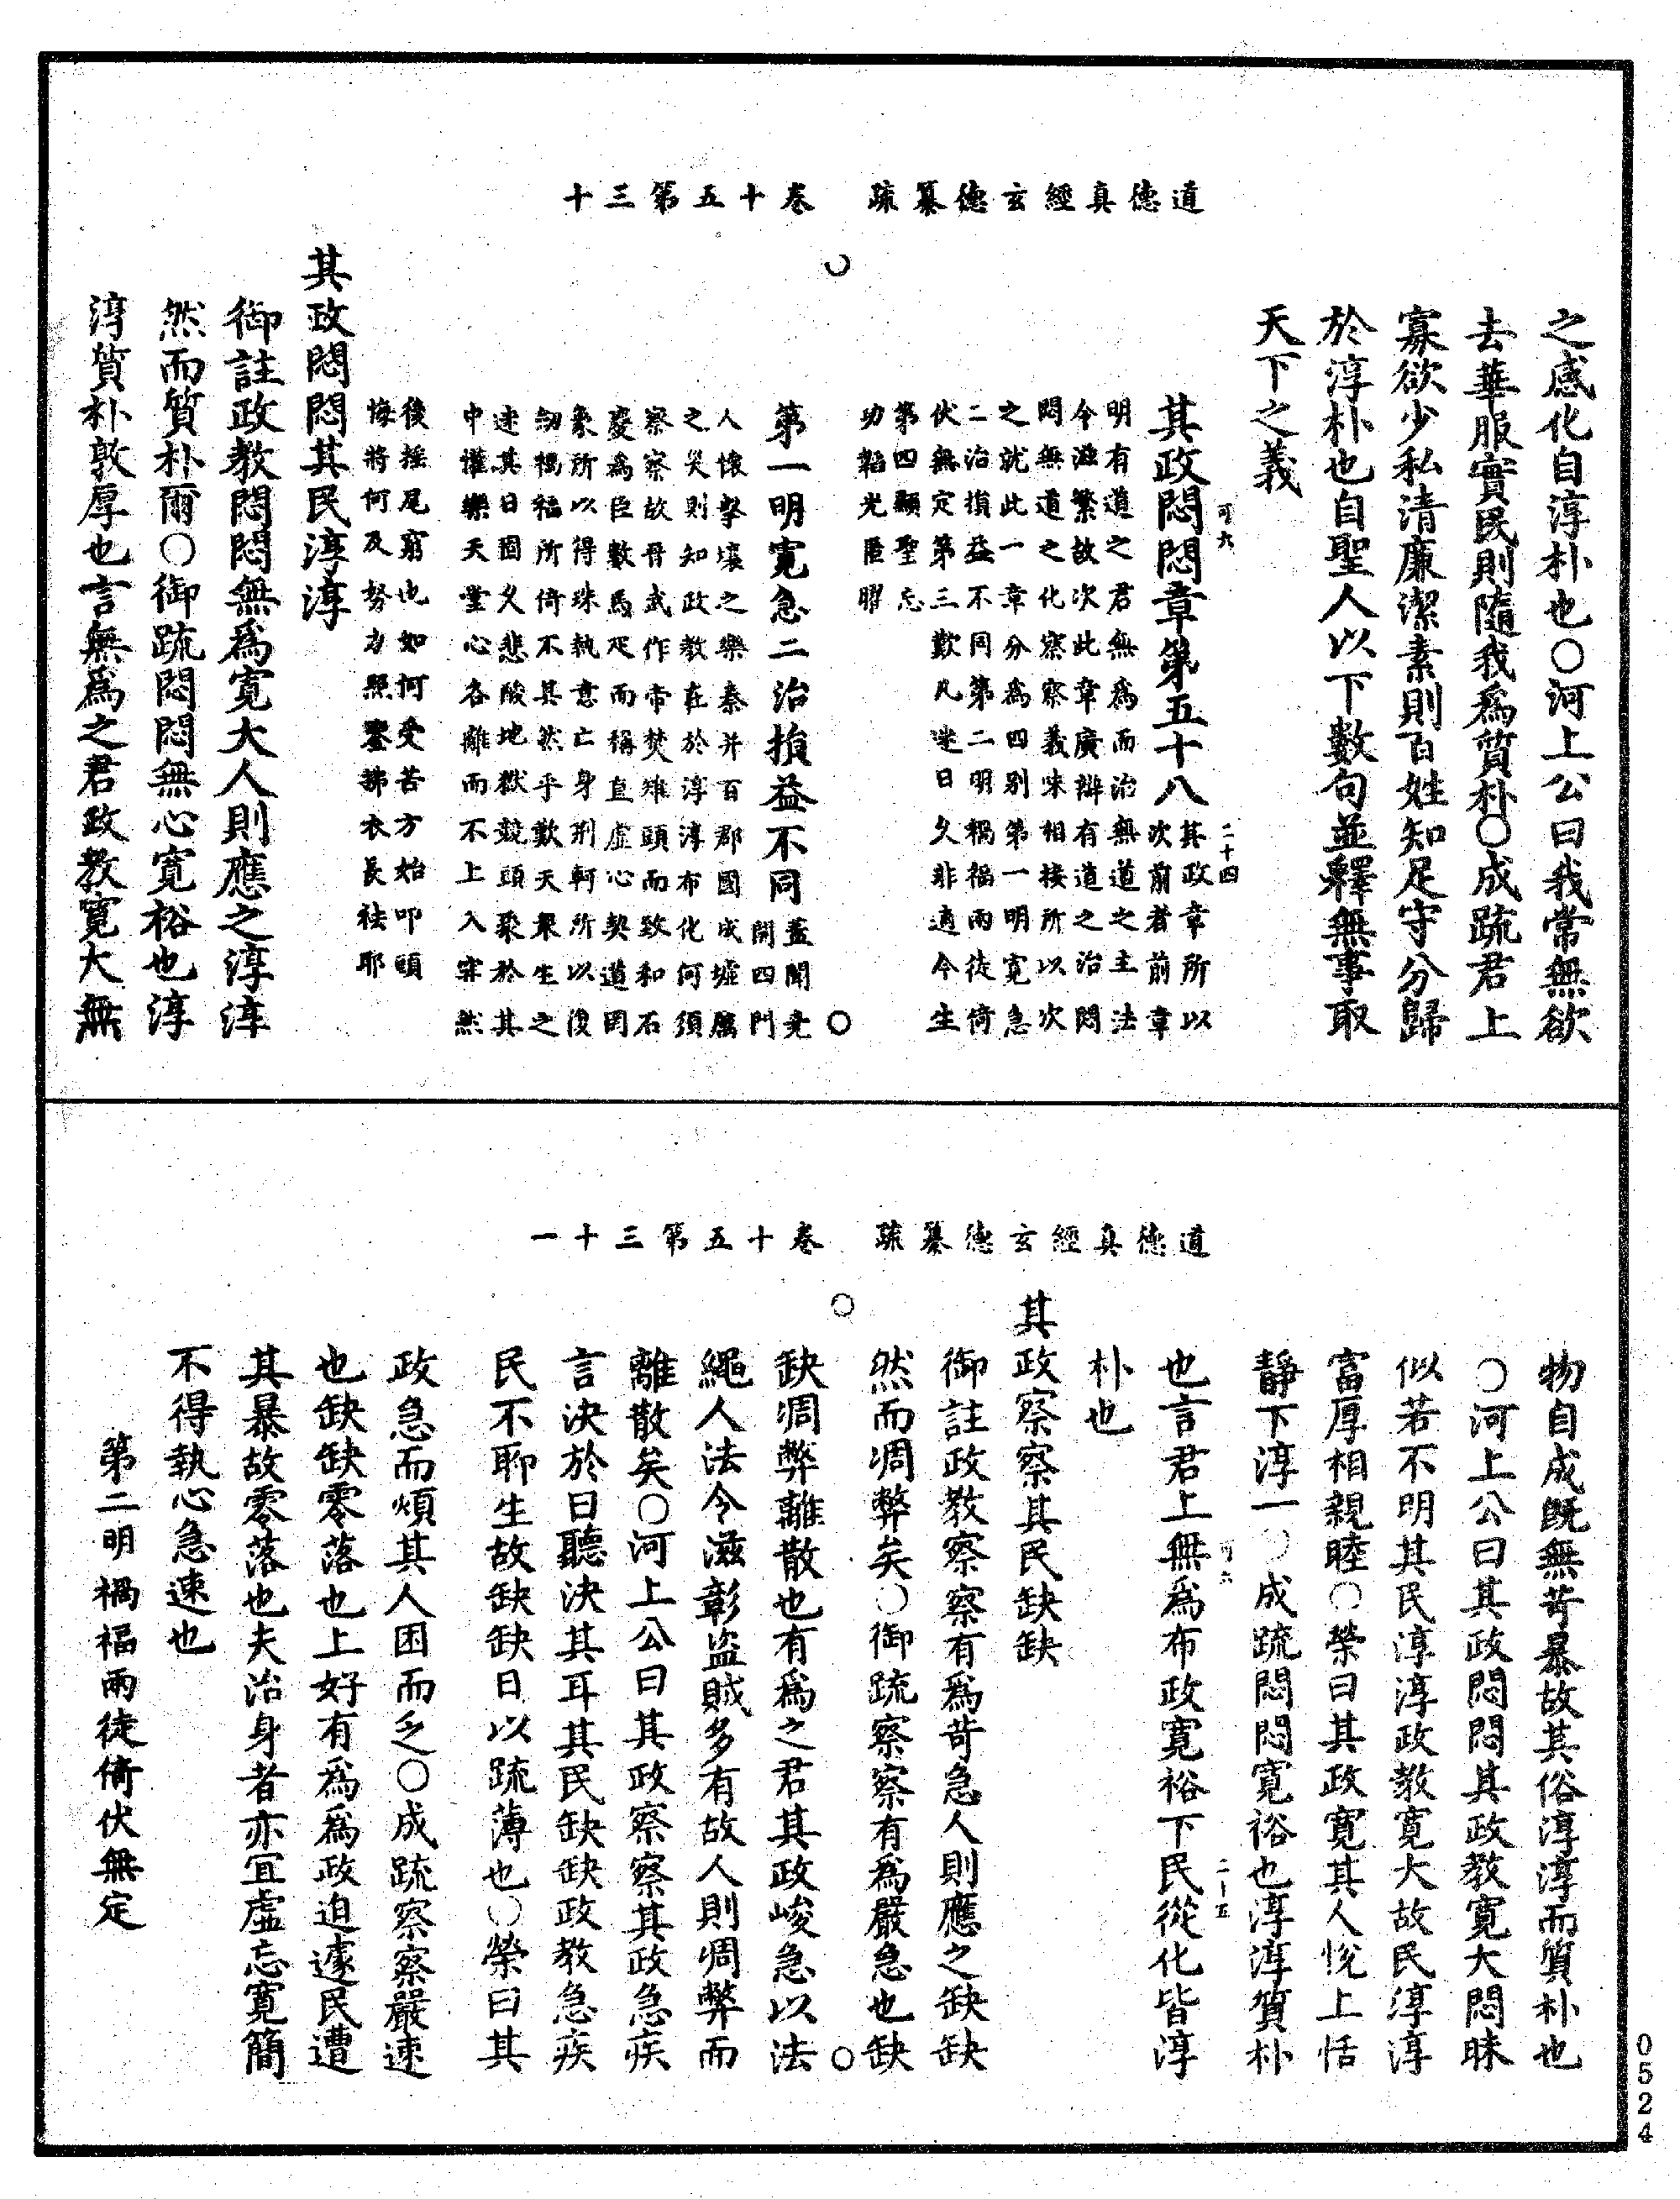 道德真經玄德纂疏　卷十五第三十
之感化自淳朴也○河上公曰我常無欲
去華服實民則隨我為質朴○成疏君上
寡欲少私清廉潔素則百姓知足守分歸
於淳朴也自聖人以下數句並釋無事取
天下之義
可六
二十四
其政悶悶章第五十八
其政章所以
次前者前章
明有道之君無為而治無道之主法
令滋繁故次此章廣辯有道之治悶
悶無道之化察察義味相接所以次
之就此一章分為四別第一明寬急
二治損益不同第二明禍福兩徒倚
伏無定第三歎凡迷日久非適今生
第四顯聖忘
功韜光匿曜
第一明寬急二治損益不同
蓋聞堯
開四門
人懷擊壤之樂秦并百郡國成墟厲
之災則知政教在於淳淳布化何須
察察故晉武作帝焚雉頭而致和石
慶為臣數馬足而稱直虛心契道罔
象所以得珠執意亡身刑軻所以復
劫禍福所倚不其然乎歎天衆生之
迷其日固久悲酸地獄競頭聚於其
中懽樂天堂心各離而不上入罪然
後搖尾窮也如何受苦方始叩頭
悔將何及努力照鑒拂衣長袪耶
其政悶悶其民淳淳
御註政教悶悶無為寬大人則應之淳淳
然而質朴爾○御疏悶悶無心寬裕也淳
淳質朴敦厚也言無為之君政教寬大無
道德真經玄德纂疏　卷十五第三十一
物自成既無苛暴故其俗淳淳而質朴也
○河上公曰其政悶悶其政教寬大悶昧
似若不明其民淳淳政教寬大故民淳淳
富厚相親睦○榮曰其政寬其人悅上恬
靜下淳一○成疏悶悶寬裕也淳淳質朴
可六
二十五
也言君上無為布政寬裕下民從化皆淳
朴也
其政察察其民缺缺
御註政教察察有為苛急人則應之缺缺
然而凋弊矣○御疏察察有為嚴急也缺
缺凋弊離散也有為之君其政峻急以法
繩人法令滋彰盜賊多有故人則凋弊而
離散矣○河上公曰其政察察其政急疾
言決於口聽決其耳其民缺缺政教急疾
民不聊生故缺缺日以疏薄也○榮曰其
政急而煩其人困而乏○成疏察察嚴速
也缺缺零落也上好有為為政迫遽民遭
其暴故零落也夫治身者亦宜虛忘寬簡
不得執心急速也
第二明禍福兩徒倚伏無定
0524